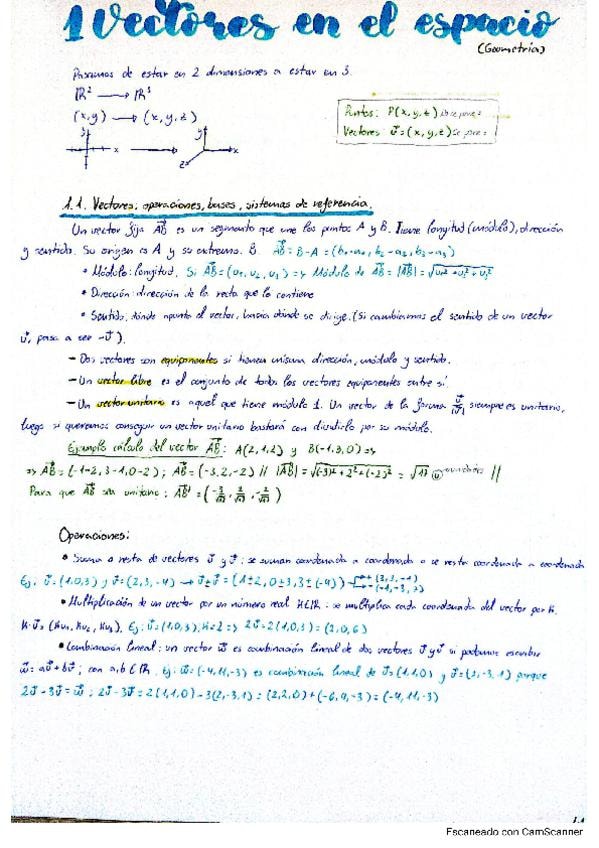 1 Vectores en el espacio
(Geometría)
Pasamos de estar en 2 dimensiones a estar en 3.
ℝ² ⟶ ℝ³
(x,y) ⟶ (x,y,z)
Puntos: P(x,y,z)
Vectores: u⃗=(x,y,z)
y x y x z
1.1. Vectores: operaciones, bases, sistemas de referencia.
Un vector fijo AB⃗ es un segmento que une los puntos A y B. Tiene longitud (módulo), dirección
y sentido. Su origen es A y su extremo B. AB⃗: B-A = (b₁-a₁, b₂-a₂, b₃-a₃)
• Módulo: longitud. Si AB⃗=(u₁, u₂, u₃) => Módulo de AB⃗ = |AB⃗| = √u₁²+u₂²+u₃²
• Dirección: dirección de la recta que lo contiene
• Sentido: dónde apunta el vector, hacia dónde se dirige. (Si cambiamos el sentido de un vector
u⃗, pasa a ser -u⃗).
— Dos vectores son equiponentes si tienen misma dirección, módulo y sentido.
— Un vector libre es el conjunto de todos los vectores equiponentes entre sí.
— Un vector unitario es aquel que tiene módulo 1. Un vector de la forma u⃗/|u⃗| siempre es unitario,
luego si queremos conseguir un vector unitario bastará con dividirlo por su módulo.
Ejemplo cálculo del vector AB⃗: A(2,1,2) y B(-1,3,0) =>
=> AB⃗=(-1-2, 3-1, 0-2); AB⃗=(-3,2,-2) // |AB⃗| = √(-3)²+2²+(-2)² = √17 u unidades //
Para que AB⃗ sea unitario: AB⃗' = (-3/√17, 2/√17, -2/√17)
Operaciones:
• Suma o resta de vectores u⃗ y v⃗: se suman coordenada a coordenada o se resta coordenada a coordenada
Ej. u⃗=(1,0,3) y v⃗=(2,3,-4) → u⃗±v⃗=(1±2, 0±3, 3±(-4)) + (3,3,-1)
- (-1,-3,7)
• Multiplicación de un vector por un número real K∈ℝ: se multiplica cada coordenada del vector por K.
K·u⃗=(Ku₁, Ku₂, Ku₃). Ej: u⃗=(1,0,3), K=2 => 2u⃗=2(1,0,3)=(2,0,6)
• Combinación lineal: un vector w⃗ es combinación lineal de dos vectores u⃗ y v⃗ si podemos escribir
w⃗=au⃗+bv⃗; con a,b∈ℝ. Ej: w⃗=(-4,11,-3) es combinación lineal de u⃗=(1,1,0) y v⃗=(2,-3,1) porque
2u⃗-3v⃗=w⃗; 2u⃗-3v⃗=2(1,1,0)-3(2,-3,1)=(2,2,0)+(-6,9,-3)=(-4,11,-3)
Escaneado con CamScanner